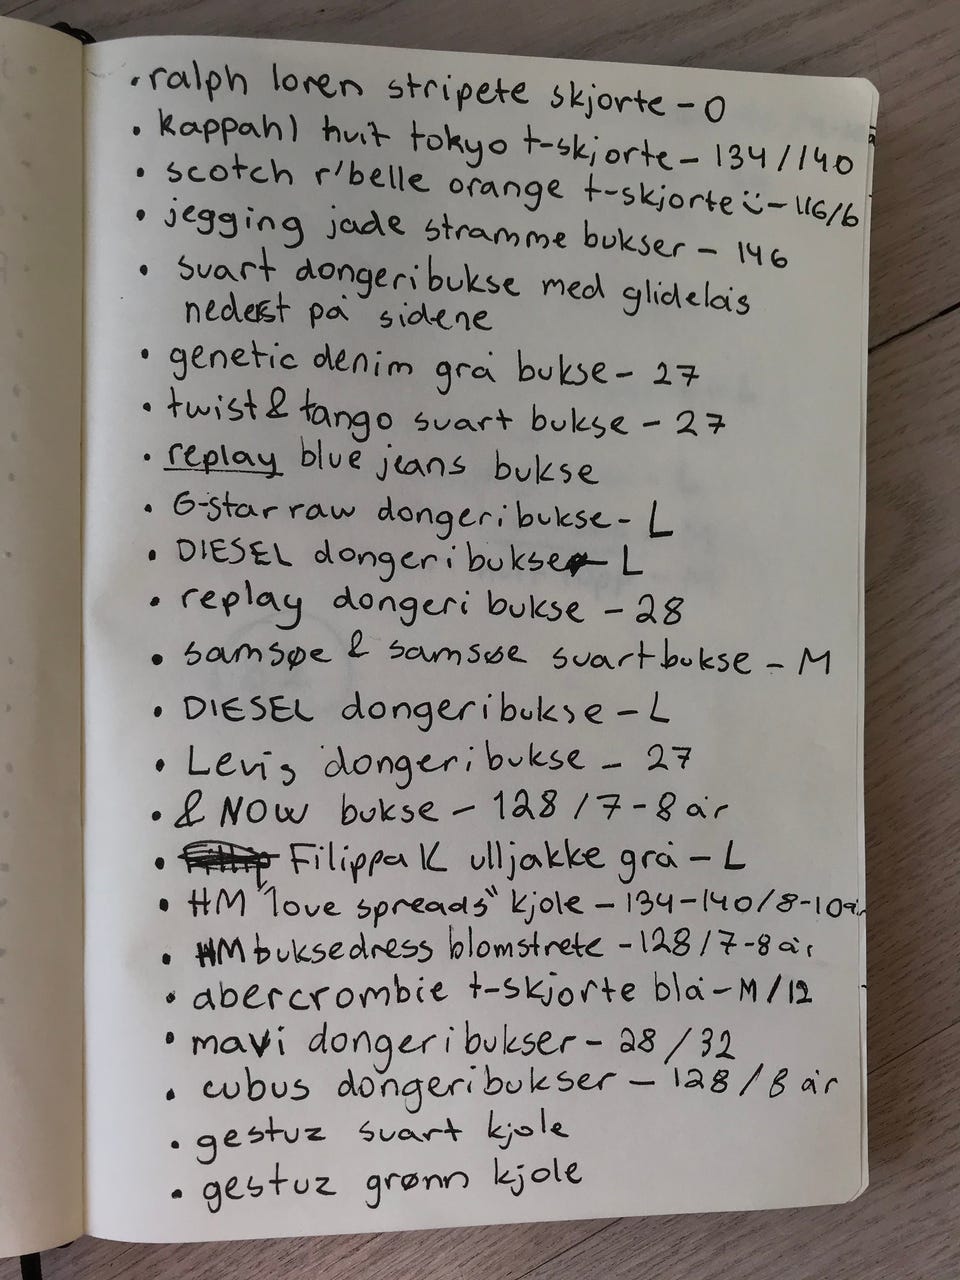 • ralph loren stripete skjorte - O
• kappahl hvit tokyo t-skjorte - 134/140
• scotch r'belle orange t-skjorte - 116/6
• jegging jade stramme bukser - 146
• svart dongeribukse med glidelås
nederst på sidene
• genetic denim grå bukse - 27
• twist & tango svart bukse - 27
• replay blue jeans bukse
• G-star raw dongeribukse - L
• DIESEL dongeribukse - L
• replay dongeri bukse - 28
• samsøe & samsøe svart bukse - M
• DIESEL dongeribukse - L
• Levis dongeribukse - 27
• & NOW bukse - 128/7-8 år
• Filippa K ulljakke grå - L
• HM "love spreads" kjole - 134-140/8-10år
• HM buksedress blomstrete - 128/7-8 år
• abercrombie t-skjorte blå - M/12
• mavi dongeribukser - 28/32
• cubus dongeribukser - 128/8 år
• gestuz svart kjole
• gestuz grønn kjole